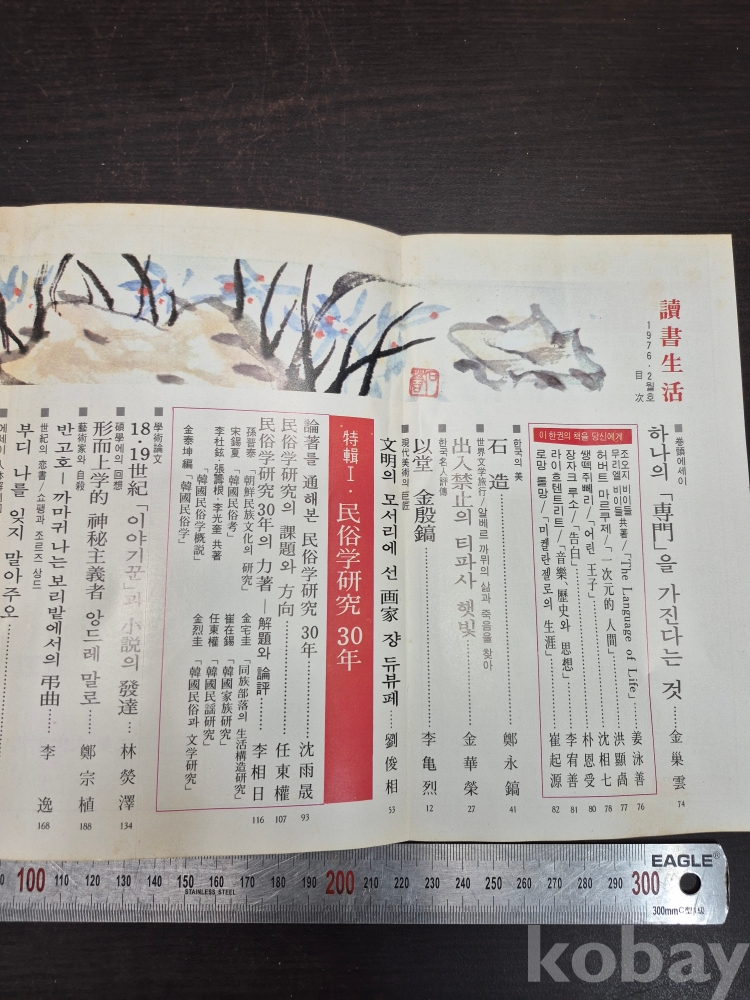 讀書生活
1976·2월호
目次
■ 卷頭에세이
하나의 「専門」을 가진다는 것……金巢雲 74
이 한권의 책을 당신에게
조오지 비이들
무리엘 비이들 共著/「The Language of Life」……姜泳善 76
洪顯卨 77
허버트 마르쿠제/「一次元的 人間」……沈相七 78
쌩떽쥐뻬리/「어린 王子」……朴恩受 80
장자크 루소/「告白」……李宥善 81
라이흐텐트리트/「音樂、歷史와 思想」
로망 롤망/「미켈란젤로의 生涯」……崔起源 82
■ 한국의 美
石造……鄭永鎬 41
■ 世界文学旅行/알베르 까뮈의 삶과 죽음을 찾아
出入禁止의 티파사 햇빛……金華榮 27
■ 한국名人評傳
以堂 金殷鎬……李亀烈 12
■ 現代美術의 巨匠
文明의 모서리에 선 画家 쟝 듀뷔페……劉俊相 53
特輯 I·民俗学研究 30年
論著를 通해본 民俗学研究 30年……沈雨晟 93
民俗学研究의 課題와 方向……任東權 107
民俗学研究30年의 力著―解題와 論評……李相日 116
孫晋泰「朝鮮民族文化의 研究」
宋錫夏「韓國民俗考」
李杜鉉·張籌根·李光奎 共著
「韓國民俗学概説」
金泰坤編「韓國民俗学」
金宅圭「同族部落의 生活構造研究」
崔在錫「韓國家族研究」
任東權「韓國民謡研究」
金烈圭「韓國民俗과 文学研究」
■ 學術論文
18·19世紀「이야기꾼」과 小説의 發達……林熒澤 134
■ 碩學에의 回想
形而上学的 神秘主義者 앙드레 말로……鄭宗植 188
■ 藝術家의 自殺
반고호―까마귀 나는 보리밭에서의 弔曲……李逸 168
■ 世紀의 恋書/쇼팽과 조르즈 상드
부디 나를 잊지 말아주오……
100 110 120 130 140 150 160 170 180 190 200 210 220 230 240 250 260 270 280 290 300
STAINLESS STEEL
EAGLE®
300mm
kobay